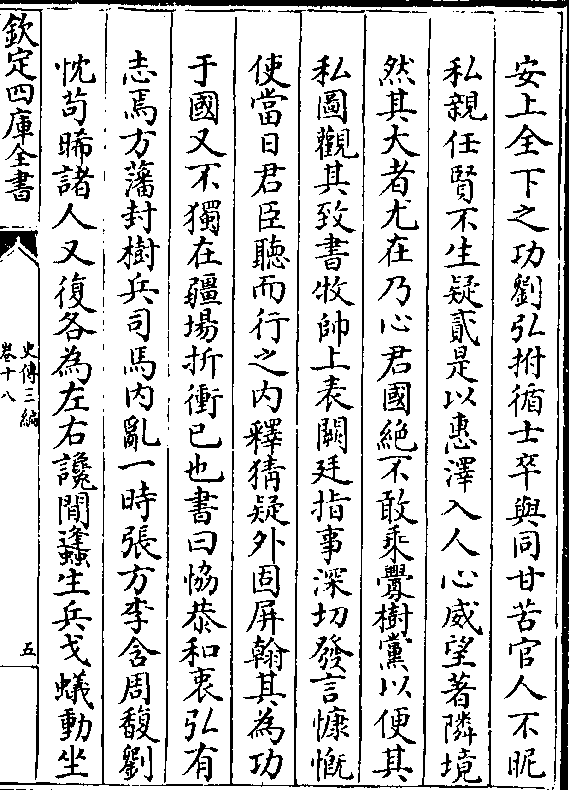 安上全下之功劉弘拊循士卒與同甘苦官人不昵
私親任賢不生疑貳是以惠澤入人心威望著隣境
然其大者尤在乃心君國絶不敢乘釁樹黨以便其
私圖觀其致書牧帥上表闕廷指事深切發言慷慨
使當日君臣聽而行之内釋猜疑外固屏翰其為功
于國又不獨在疆場折衝已也書曰恊恭和衷弘有
志焉方藩封樹兵司馬内亂一時張方李含周馥劉
忱苟晞諸人又復各為左右讒間蠭生兵戈蟻動坐
欽定四庫全書
史傳三編
卷十八
五